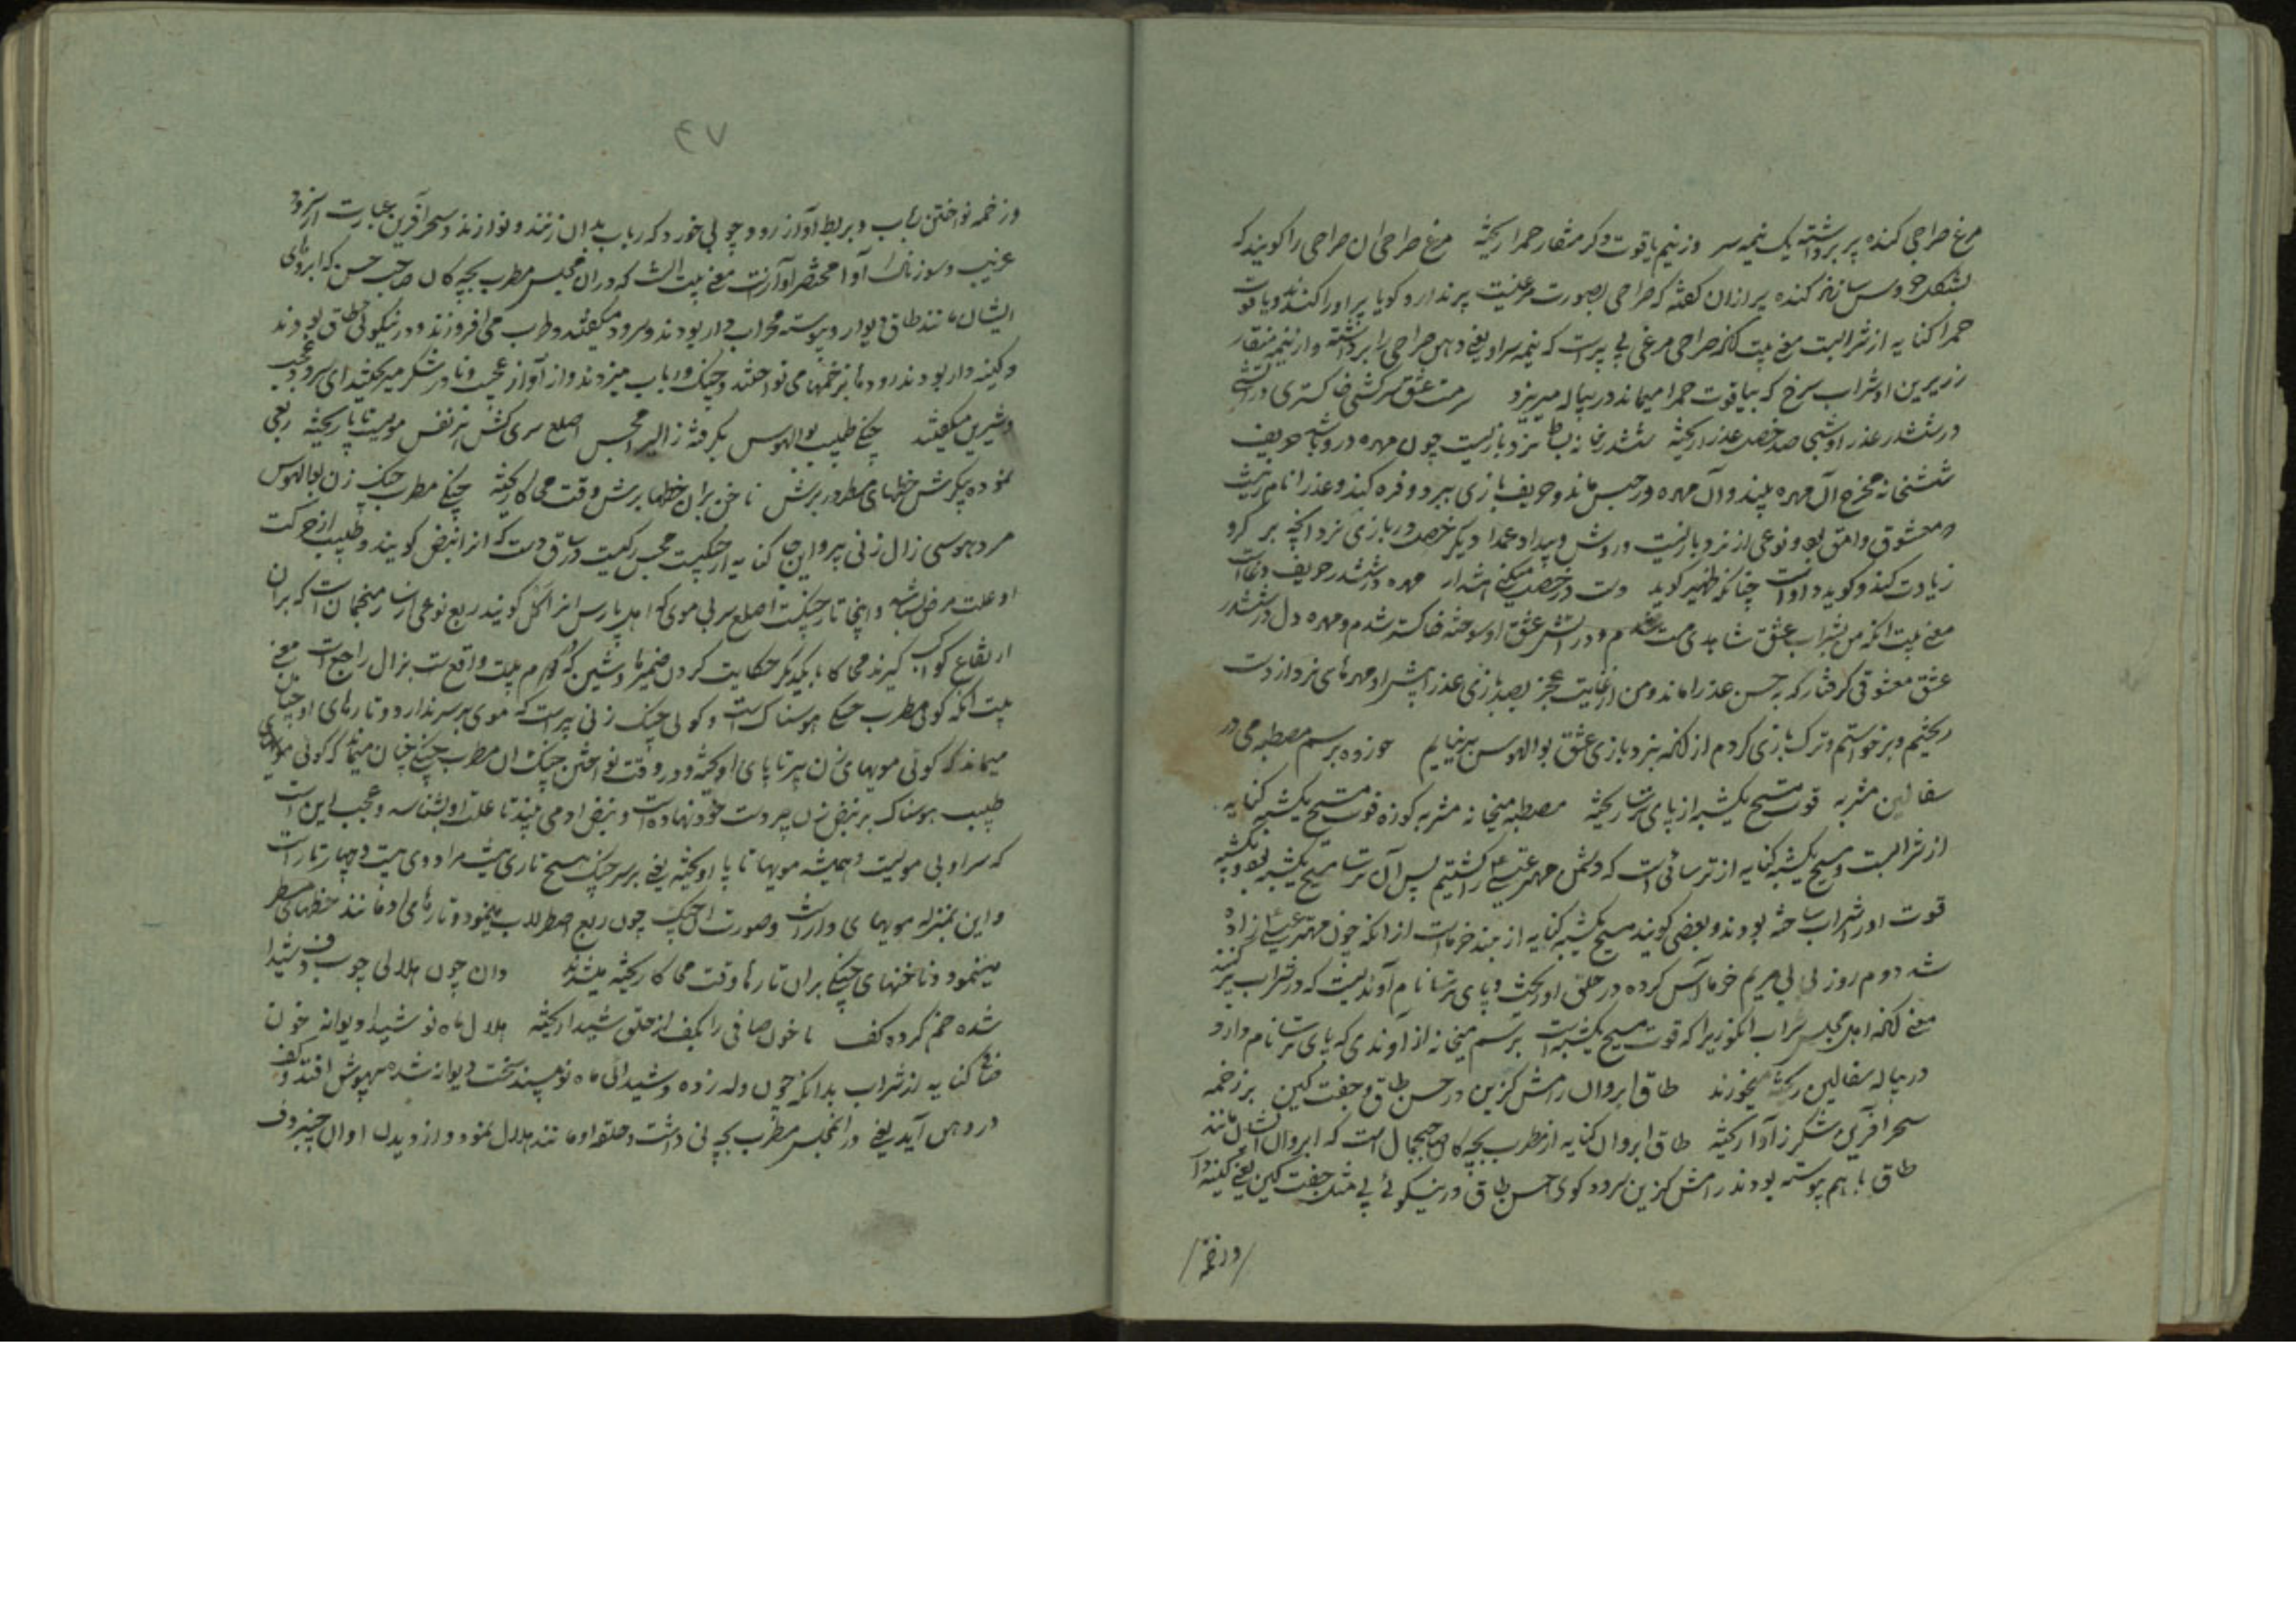 مرغ صراحی کنده پر برداشته یک نیمه سر وز نیم یاقوت دگر منقار حمرا ریخته مرغ صراحی ان صراحی را کویند که
بشکل خروس سازند کنده پر ازان کفته که صراحی بصورت مرغیست پر ندارد و کویا پر او را کنده اند و یاقوت
حمرا کنایه از شرابست معنی بیت آنکه صراحی مرغی بی پر است که نیمه سر او یعنی دهن صراحی را برداشته و از نیمه منقار
زیرین او شراب سرخ که بیاقوت حمرا میماند در پیاله میریزد سرمست عشق سرکشی خاکستری در آتشی
در ششدر عذر اوشی صد خصل عذرا ریخته ششدر خانه بساط نرد بازیست چون مهره درو باشد حریف
ششخانه مخرج آن مهره ببندد و آن مهره در حبس ماند و حریف بازی ببرد و فره کند و عذرا نام زنیست
و معشوق وامق بود و نوعی از نرد بازیست و روش و بیداد عمدا دیگر خصل در بازی نرد انچه بر کرو
زیادت کنند و کوید داو است چنانکه ظهیر کوید دست در خصل میکنی هشدار مهره در ششدر حریف دغاست
معنی بیت انکه من بشراب عشق شاهدی مست شدم و در آتش عشق او سوخته خاکستر شدم و مهره دل در ششدر
عشق معشوقی کرفتار که به حسن عذرا ماند و من از غایت عجز بصد بازی عذرا پیش او مهرهای نرد از دست
ریختم و برخواستم و ترک بازی کردم از آنکه بنرد بازی عشق بوالهوس بر نیایم خورده برسم مصطبه می در
سفالین مشربه قوت مسیح یکشبه از پای ترسا ریخته مصطبه میخانه مشربه کوزه قوت مسیح یکشبه کنایه
از شرابست و مسیح یکشبه کنایه از ترسائی است که دشمن مهتر عیسی را کشتیم پس آن ترسا مسیح یکشبه بود و یکشبه
قوت او از شراب ساخته بودند و بعضی کویند مسیح یکشبه کنایه از بند خرماست از انکه چون مهتر عیسی زاده
شد دوم روز بی بی مریم خرما آس کرده در حلق او ریخت و پای ترسا نام آوندیست که در شراب پر کنند
معنی آنکه اهل مجلس شراب انکور را که قوت مسیح یکشبه است برسم میخانه از آوندی که پای ترسا نام دارد
در پیاله سفالین ریخته میخورند طاق ابروان رامش کزین در حسن طاق و جفت کین بر زخمه
سحر آفرین شکر ز آوا ریخته طاق ابروان کنایه از مطرب بچه کان صاحب جمال است که ابروان ایشان مانند
طاق با هم پیوسته بودند رامش کزین سرود کوی حسن طاق در نیکوئی بی مثل جفت کین یعنی کینه دار
ورخمه
۴۷
وزخمه نواختن رباب و بربط و آواز رود و چوبی خورد که رباب بدان زنند و نوازند و سحر آفرین عبارت از سرود
غریب و سوزناک آوا مختصر آواز است معنی بیت انست که دران مجلس مطرب بچه کان صاحب حسن که ابروهای
ایشان مانند طاق دیوار و پیوسته محراب دار بودند و سرود میکفتند و طرب می افروزند و در نیکوئی طاق بودند
و کینه دار بودند رود مانرا زخمها می نواختند و چنک و رباب میزدند و از آواز عجیب و نادر شکر میریختند ای سرود عجب
و شیرین میکفتند چنکی طبیب بوالهوس بکرفته زال را مجس اصلع سری کش هر نفس مویست تا پا ریخته ربعی
نموده پیکرش خطهای مسطر در برش ناخن بران خطها برش وقت محاکا ریخته چنکی مطرب چنک زن بوالهوس
مرد هوسی زال زنی پیر و اینجا کنایه از چنکست مجس رکیست در ساق دست که انرا نبض کویند و طبیب از حرکت
او علت مرض شناسد و اینجا تار چنکست اصلع سر بی موی که اهل پارس انرا کل کویند ربع نوعی از ساز منجمان است که بران
ارتفاع کواکب کیرند محاکا با یکدیکر حکایت کردن ضمیر شین که دوم بیت واقع است بزال راجع است معنی
بیت آنکه کوئی مطرب چنکی هوسناک است و کوئی چنک زنی پیر است که موی بر سر ندارد و تارهای او چنان
میماند که کوئی مویهای زن پیر تا پای او ریخته و در وقت نواختن چنک ان مطرب چنکی چنان میماند که کوئی
طبیب هوسناک بر نبض زن پیر دست خود نهاده است و نبض او می بیند تا علت او بشناسد و عجب این است
که سر او بی مویست و همیشه مویها تا پا او ریخته یعنی بر سر چنک هیچ تاری نیست مرا و وی بیست و چهار تار است
و این بمنزله مویهای دار است و صورت آن چنک چون ربع اصطرلاب مینمود و تارهای او مانند خطهای مسطر
مینمود و ناخنهای چنکی بران تارها وقت محاکا ریخته میشدند وان چون هلالی چوب دف شیدا
شده خم کرده کف ما خون صافی را بکف از حلق شیدا ریخته هلال ماه نو شیدا دیوانه خون
صافی کنایه از شراب بدانکه چون وله زده و شیدائی ماه نو بیند سخت دیوانه شده بیهوش افتد و کف
در دهن آید یعنی در انمجلس مطرب بچه نی داشت و حلقه او مانند هلال نمود و از دیدن او ان چنبر دف